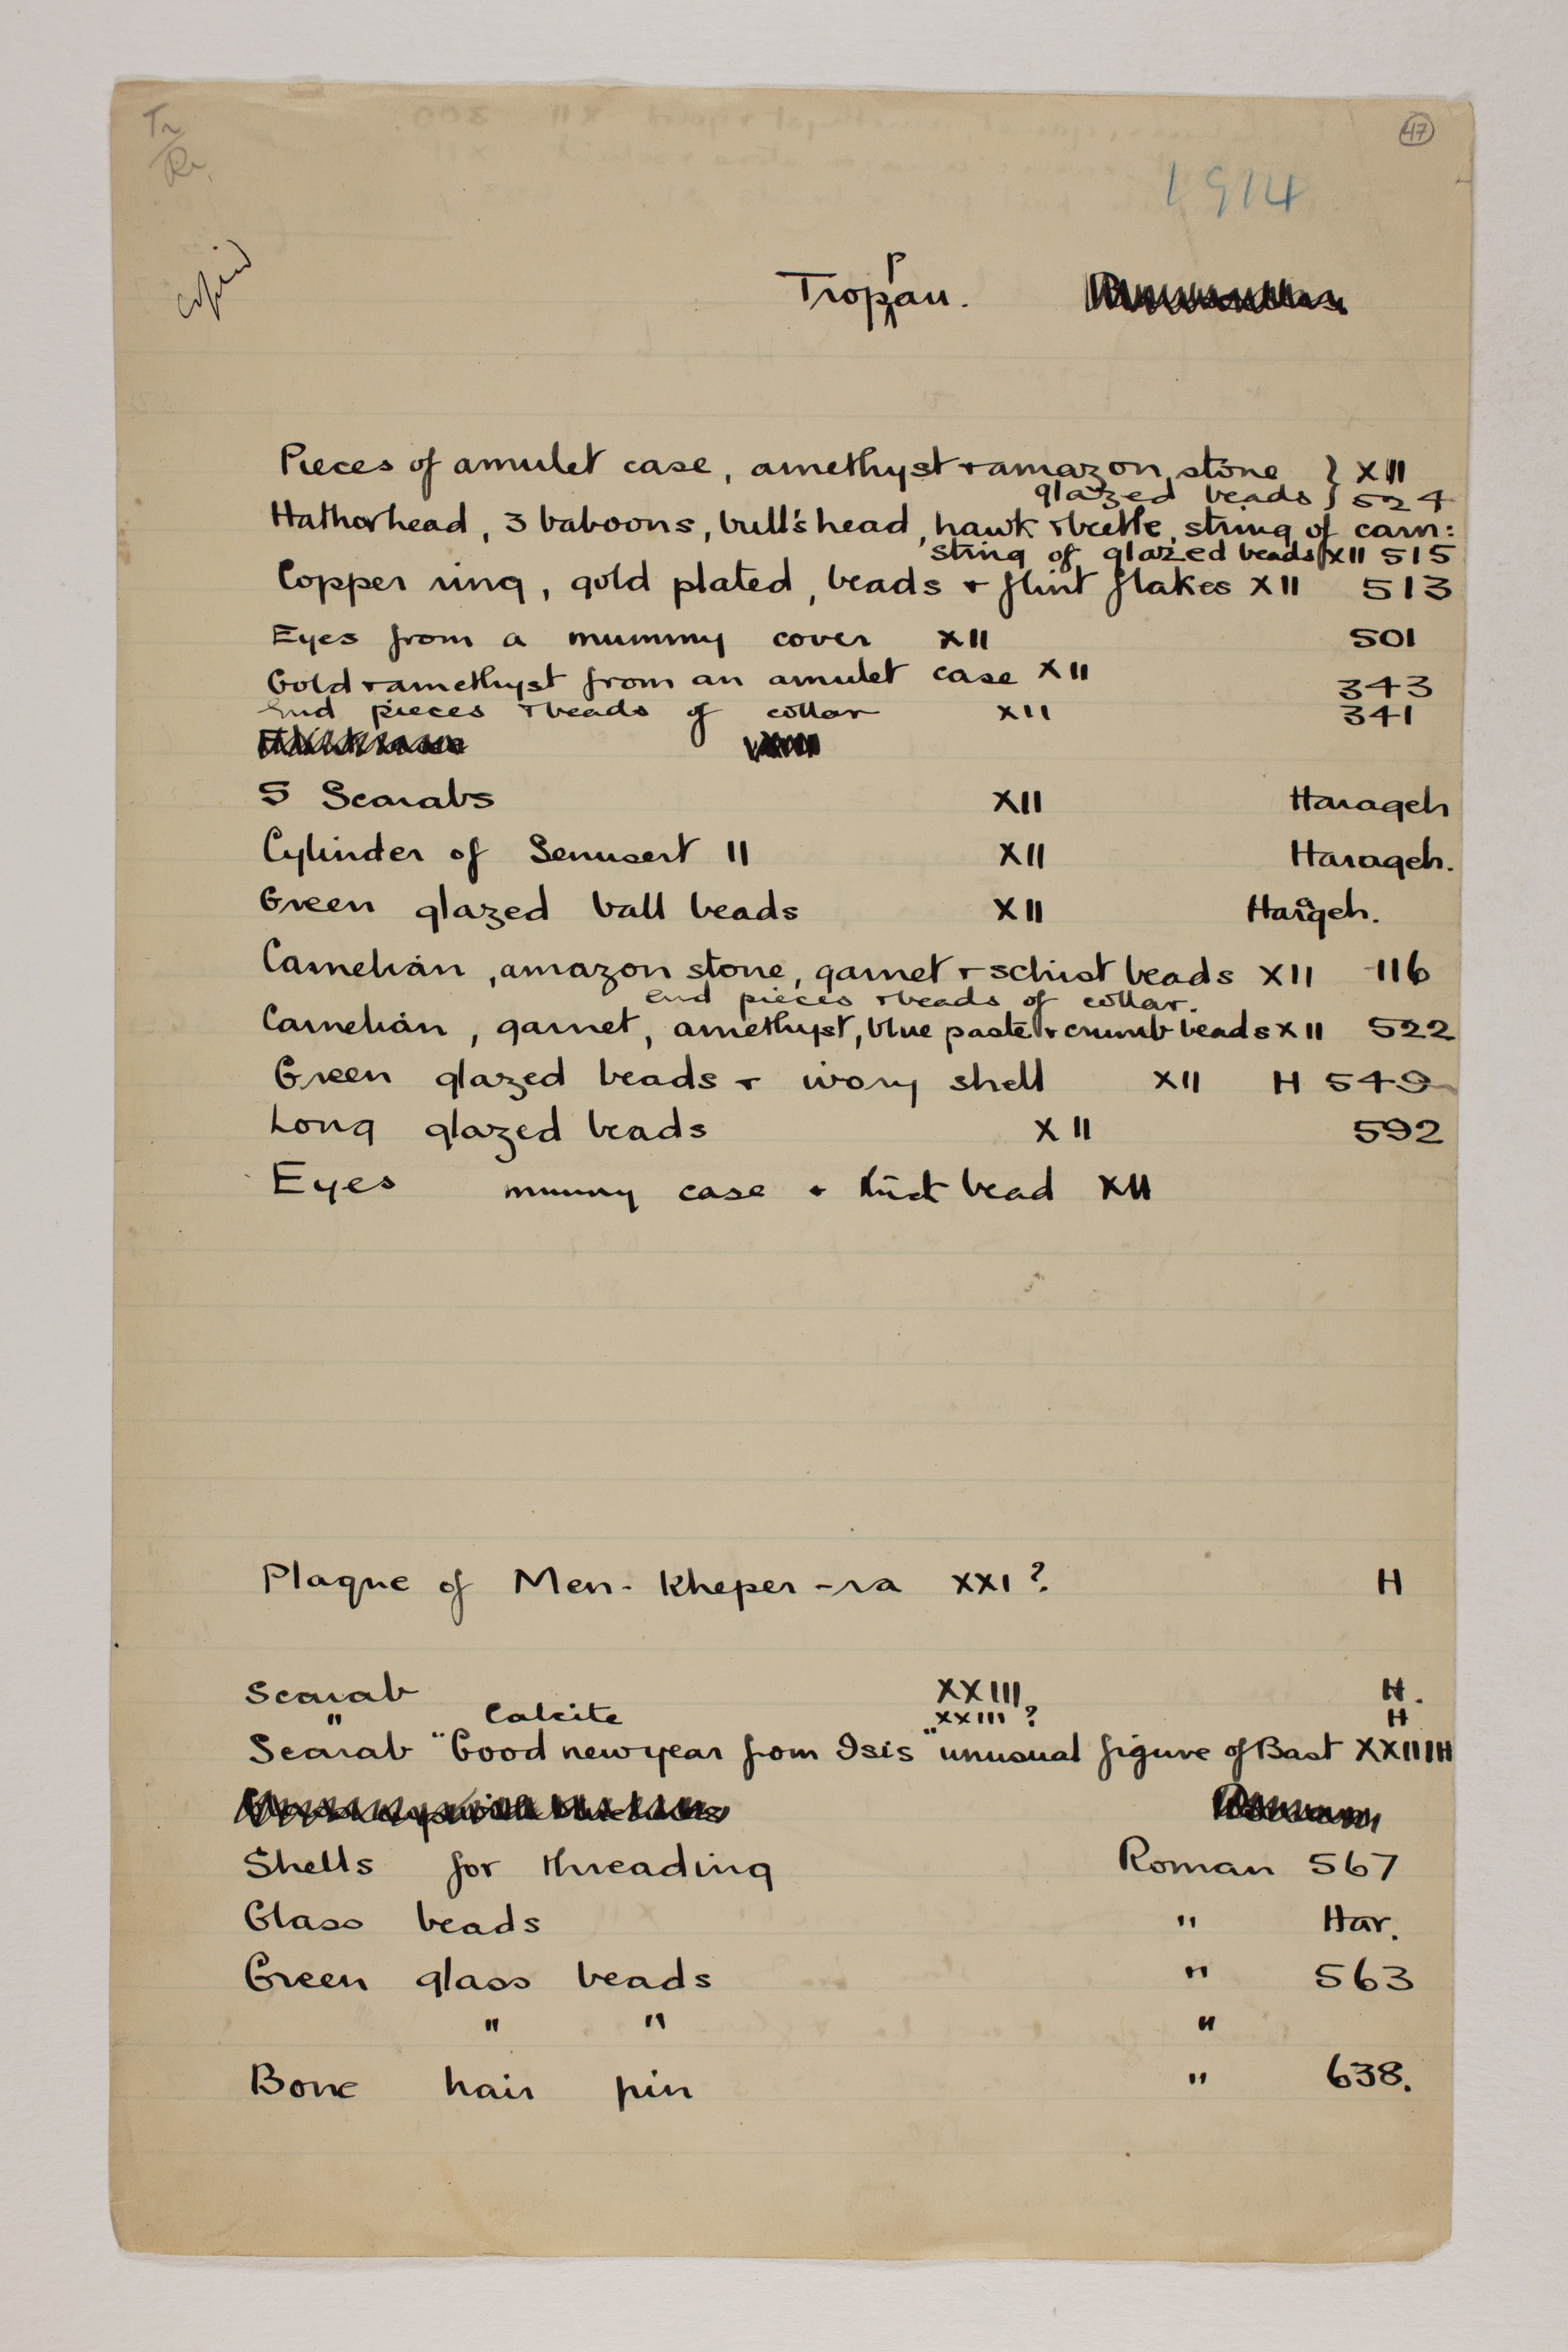 Tr/Re.
47
1914
copied
Troppau.
Pieces of amulet case, amethyst + amazon stone } XII
glazed beads } 524
Hathorhead, 3 baboons, bull's head, hawk + beetle, string of carn:
string of glazed beads XII 515
Copper ring, gold plated, beads + flint flakes XII 513
Eyes from a mummy cover XII 501
Gold + amethyst from an amulet case XII 343
End pieces + beads of collar XII 341
5 Scarabs XII Harageh
Cylinder of Senusert II XII Harageh.
Green glazed ball beads XII Harageh.
Carnelian, amazon stone, garnet + schist beads XII 116
end pieces + beads of collar.
Carnelian, garnet, amethyst, blue paste + crumb beads XII 522
Green glazed beads + ivory shell XII H 549
Long glazed beads XII 592
Eyes mummy case + bead XII
Plaque of Men-Kheper-ra XXI? H
Scarab XXIII H.
" Calcite XXIII? H
Scarab "Good new year from Isis" unusual figure of Bast XXIII H
Shells for threading Roman 567
Glass beads " Har.
Green glass beads " 563
" " "
Bone hair pin " 638.